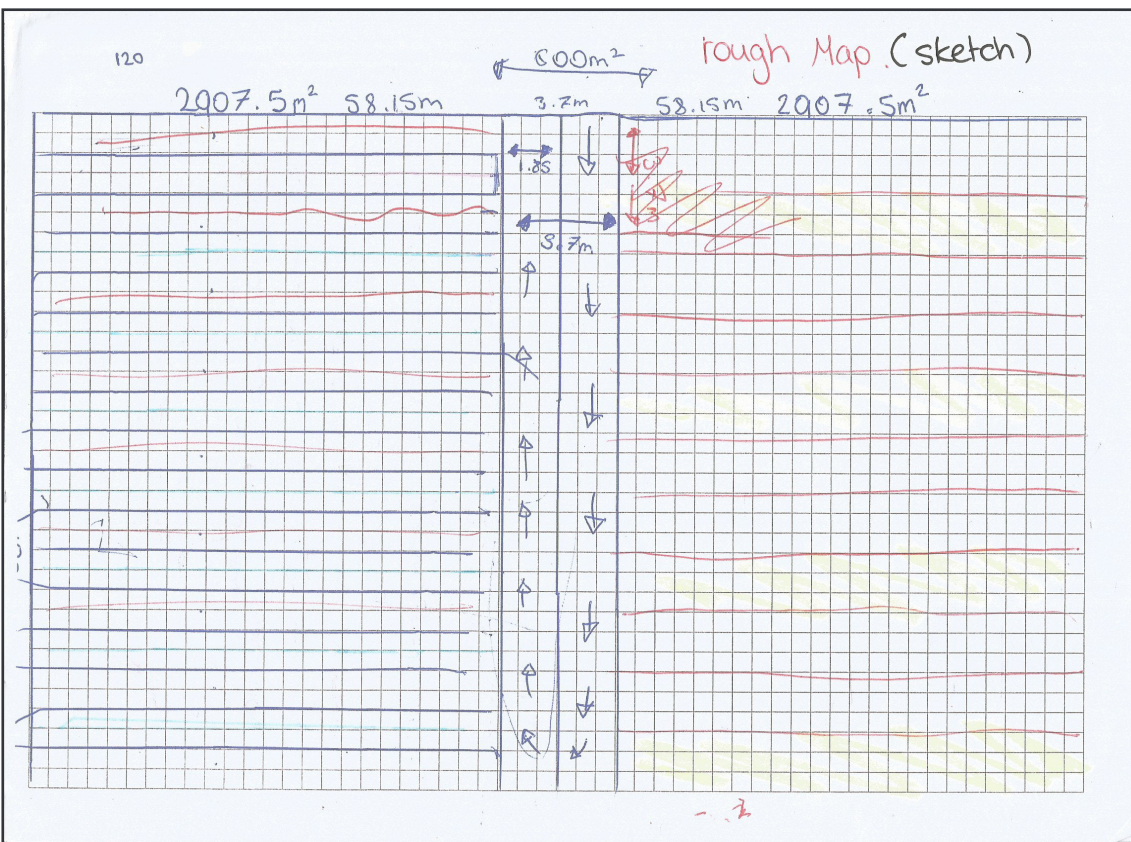 120
600m²
rough Map. (sketch)
2907.5m² 58.15m 3.7m 58.15m 2907.5m²
1.85
3.7m
3